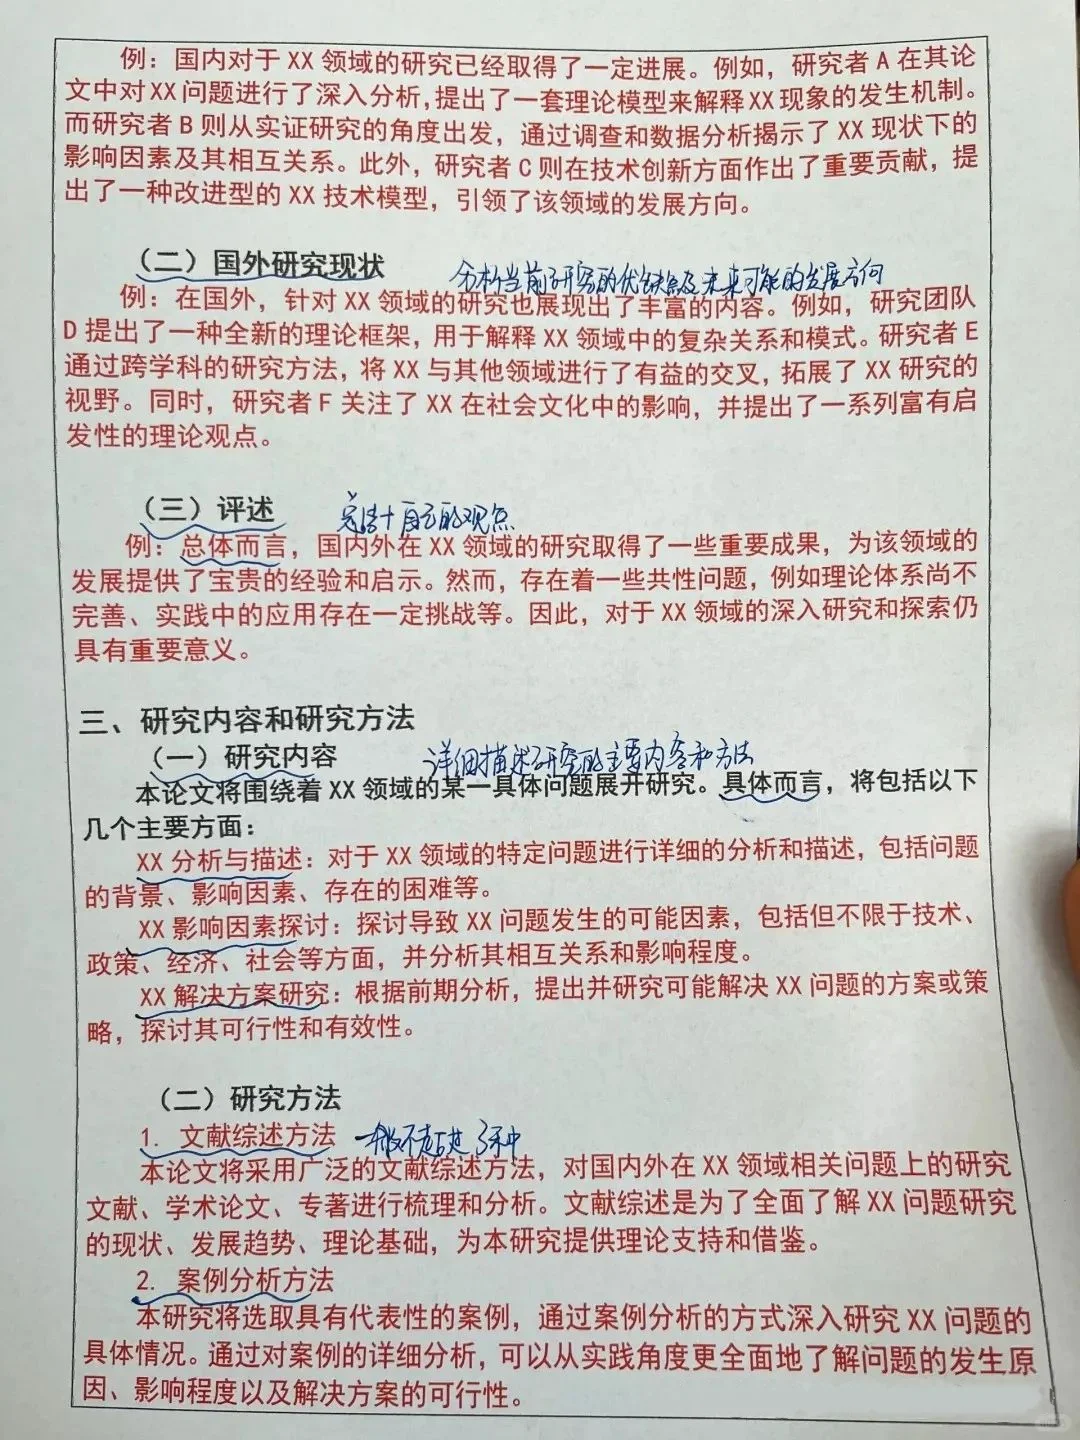 例：国内对于XX领域的研究已经取得了一定进展。例如，研究者A在其论
文中对XX问题进行了深入分析，提出了一套理论模型来解释XX现象的发生机制。
而研究者B则从实证研究的角度出发，通过调查和数据分析揭示了XX现状下的
影响因素及其相互关系。此外，研究者C则在技术创新方面作出了重要贡献，提
出了一种改进型的XX技术模型，引领了该领域的发展方向。
（二）国外研究现状
分析当前研究的优缺点及未来可能的发展方向
例：在国外，针对XX领域的研究也展现出了丰富的内容。例如，研究团队
D提出了一种全新的理论框架，用于解释XX领域中的复杂关系和模式。研究者E
通过跨学科的研究方法，将XX与其他领域进行了有益的交叉，拓展了XX研究的
视野。同时，研究者F关注了XX在社会文化中的影响，并提出了一系列富有启
发性的理论观点。
（三）评述
总结+自己的观点
例：总体而言，国内外在XX领域的研究取得了一些重要成果，为该领域的
发展提供了宝贵的经验和启示。然而，存在着一些共性问题，例如理论体系尚不
完善、实践中的应用存在一定挑战等。因此，对于XX领域的深入研究和探索仍
具有重要意义。
三、研究内容和研究方法
（一）研究内容
详细描述研究的主要内容和方法
本论文将围绕着XX领域的某一具体问题展开研究。具体而言，将包括以下
几个主要方面：
XX分析与描述：对于XX领域的特定问题进行详细的分析和描述，包括问题
的背景、影响因素、存在的困难等。
XX影响因素探讨：探讨导致XX问题发生的可能因素，包括但不限于技术、
政策、经济、社会等方面，并分析其相互关系和影响程度。
XX解决方案研究：根据前期分析，提出并研究可能解决XX问题的方案或策
略，探讨其可行性和有效性。
（二）研究方法
1. 文献综述方法
一般不超过3种
本论文将采用广泛的文献综述方法，对国内外在XX领域相关问题上的研究
文献、学术论文、专著进行梳理和分析。文献综述是为了全面了解XX问题研究
的现状、发展趋势、理论基础，为本研究提供理论支持和借鉴。
2. 案例分析方法
本研究将选取具有代表性的案例，通过案例分析的方式深入研究XX问题的
具体情况。通过对案例的详细分析，可以从实践角度更全面地了解问题的发生原
因、影响程度以及解决方案的可行性。